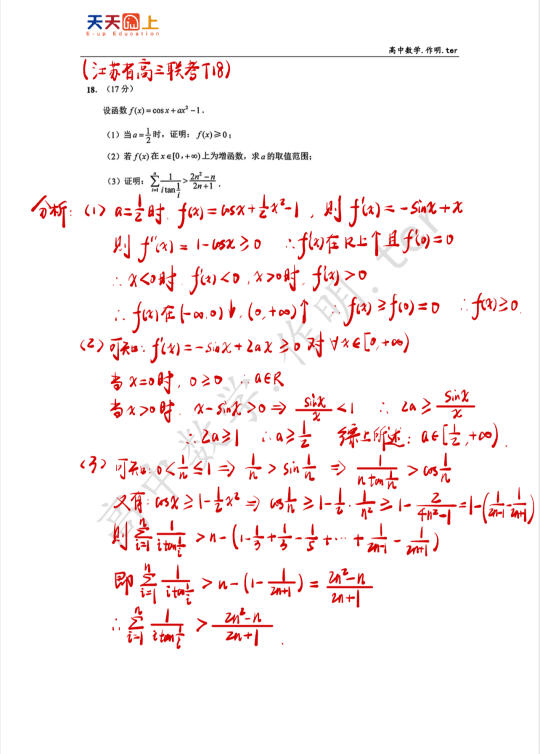 天天向上
E-up Education
高中数学.作明.ter
(江苏省高三联考T18)
18. (17分)
设函数 f(x)=cos x+ax²-1.
(1) 当 a=1/2 时, 证明: f(x)≥0;
(2) 若 f(x) 在 x∈[0,+∞) 上为增函数, 求 a 的取值范围;
(3) 证明: ∑_{i=1}^{n} 1/(i tan(1/i)) > (2n²-n)/(2n+1).
分析: (1) a=1/2时, f(x)=cosx+1/2x²-1, 则 f'(x)=-sinx+x
则 f''(x)=1-cosx≥0 ∴f'(x)在R上↑且f'(0)=0
∴x<0时 f'(x)<0, x>0时, f'(x)>0
∴f(x)在(-∞,0)↓, (0,+∞)↑ ∴f(x)≥f(0)=0 ∴f(x)≥0.
(2) 可知: f'(x)=-sinx+2ax≥0 对∀x∈[0,+∞)
当x=0时, 0≥0 ∴a∈R
当x>0时, x-sinx>0⇒sinx/x<1 ∴2a≥sinx/x
∴2a≥1 ∴a≥1/2 综上所述: a∈[1/2,+∞).
(3) 可知: 0<1/n≤1⇒1/n>sin1/n ⇒ 1/(n tan(1/n))>cos1/n
又有: cosx≥1-1/2x²⇒cos1/n≥1-1/2·1/n²≥1-2/(4n²-1)=1-(1/(2n-1)-1/(2n+1))
则∑_{i=1}^{n} 1/(i tan(1/i))>n-(1-1/3+1/3-1/5+⋯+1/(2n-1)-1/(2n+1))
即∑_{i=1}^{n} 1/(i tan(1/i))>n-(1-1/(2n+1))=(2n²-n)/(2n+1)
∴∑_{i=1}^{n} 1/(i tan(1/i))>(2n²-n)/(2n+1).
高中数学.作明.ter